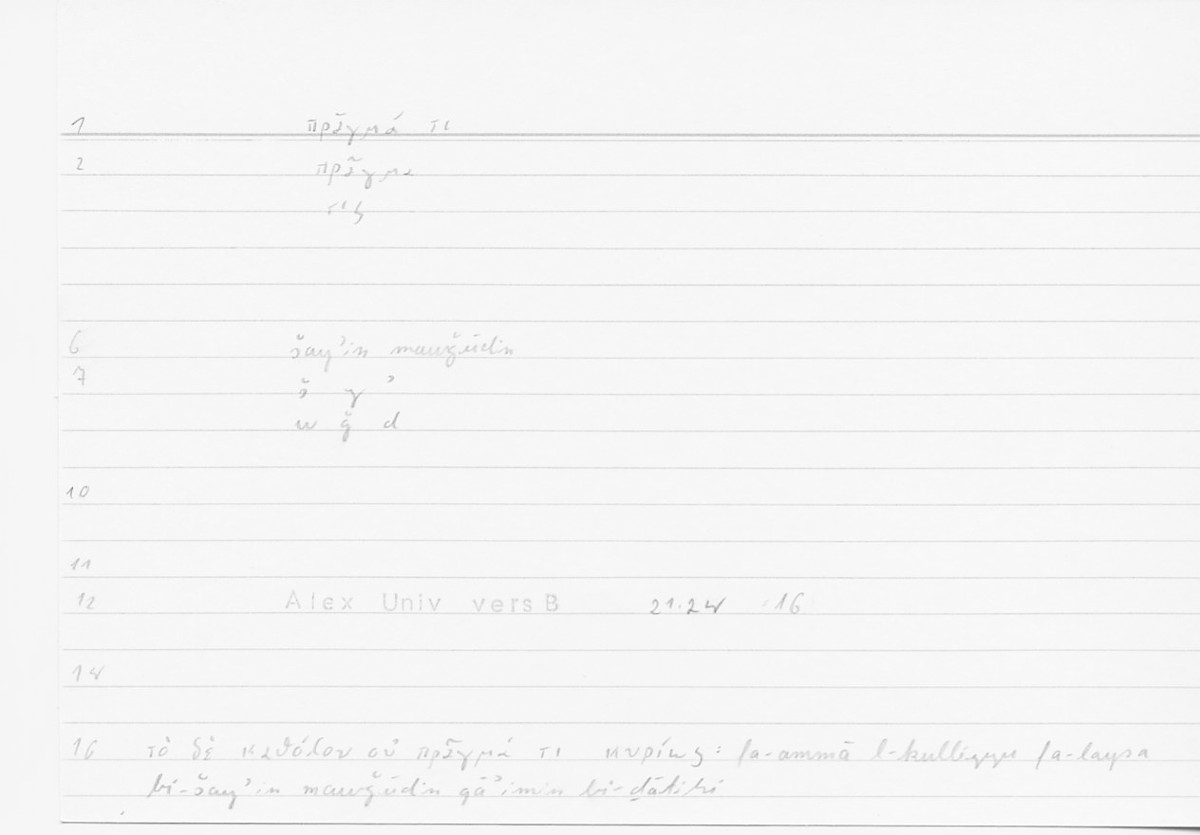 1 πρᾶγμά τι
2 πρᾶγμα
τις
6 šayʾin mawǧūdin
7
š y ʾ
w ǧ d
10
11
12 Alex Univ vers B 21.24 :16
14
16 τὸ δὲ καθόλου οὐ πρᾶγμά τι κυρίως: fa-ammā l-kullīyu fa-laysa
bi-šayʾin mawǧūdin qāʾimin bi-ḏātihī